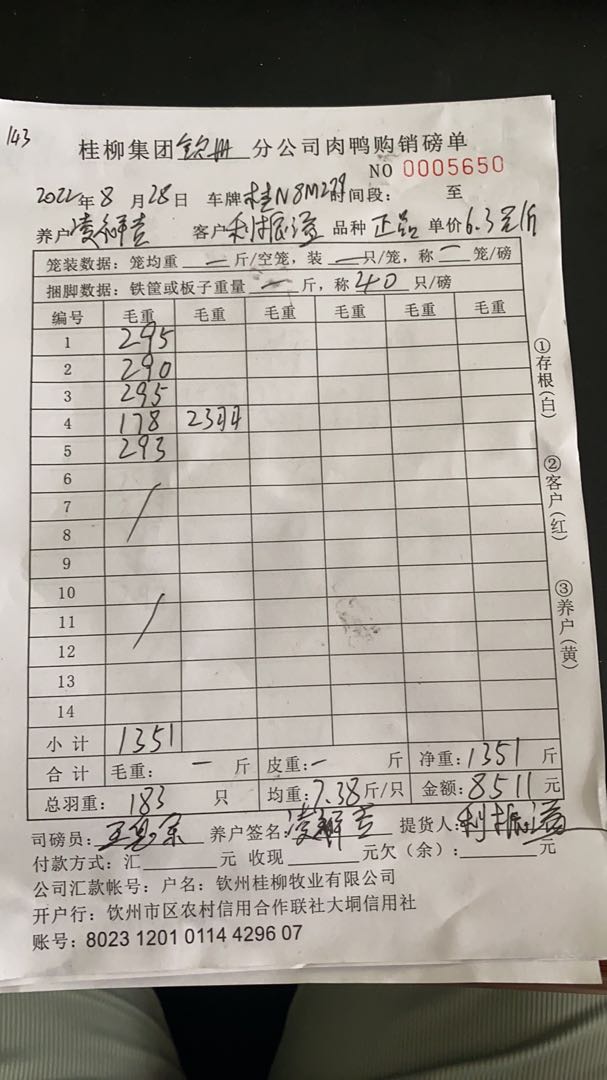 143
桂柳集团钦州分公司肉鸭购销磅单
NO 0005650
2022年8月28日 车牌桂N8M279时间段: 至
养户凌解吉 客户利振溢 品种正品 单价6.3元/斤
笼装数据: 笼均重 一 斤/空笼, 装 一 只/笼, 称 一 笼/磅
捆脚数据: 铁筐或板子重量 一 斤, 称 40 只/磅
编号 毛重 毛重 毛重 毛重 毛重 毛重
1 295
2 290
3 295
4 178 23只
5 293
6
7
8
9
10
11
12
13
14
小计 1351
合计 毛重: 一 斤 皮重: 一 斤 净重: 1351 斤
总羽重: 183 只 均重: 7.38斤/只 金额: 8511元
司磅员: 养户签名: 凌解吉 提货人: 利振溢
付款方式: 汇 元 收现 元欠(余): 元
公司汇款帐号: 户名: 钦州桂柳牧业有限公司
开户行: 钦州市区农村信用合作联社大垌信用社
账号: 8023 1201 0114 4296 07
①存根(白)
②客户(红)
③养户(黄)